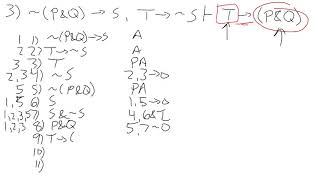 3) ~(P&Q) → S, T → ~S ⊢ T → (P&Q)
1 1) ~(P&Q) → S A
2 2) T → ~S A
3 3) T PA
2,3 4) ~S 2,3 → O
5 5) ~(P&Q) PA
1,5 6) S 1,5 → O
1,2,3,5 7) S & ~S 4,6 & I
1,2,3 8) P&Q 5,7 ~O
9) T → (
10)
11)